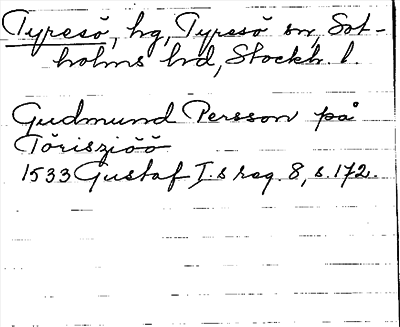 Tyresö, hg, Tyresö sn, Sot-
holms hd, Stockh. l.
Gudmund Persson på
Törisziöö
1533 Gustaf I.s reg. 8, s. 172.